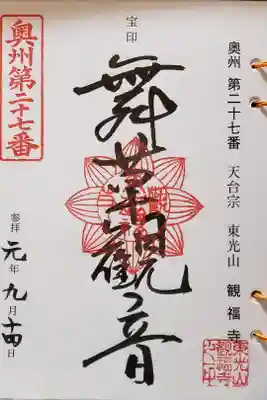 奥州 第二十七番 天台宗 東光山 観福寺
宝印
舞草観音
奥州第二十七番
参拝 元年九月十四日
東光山
観福寺